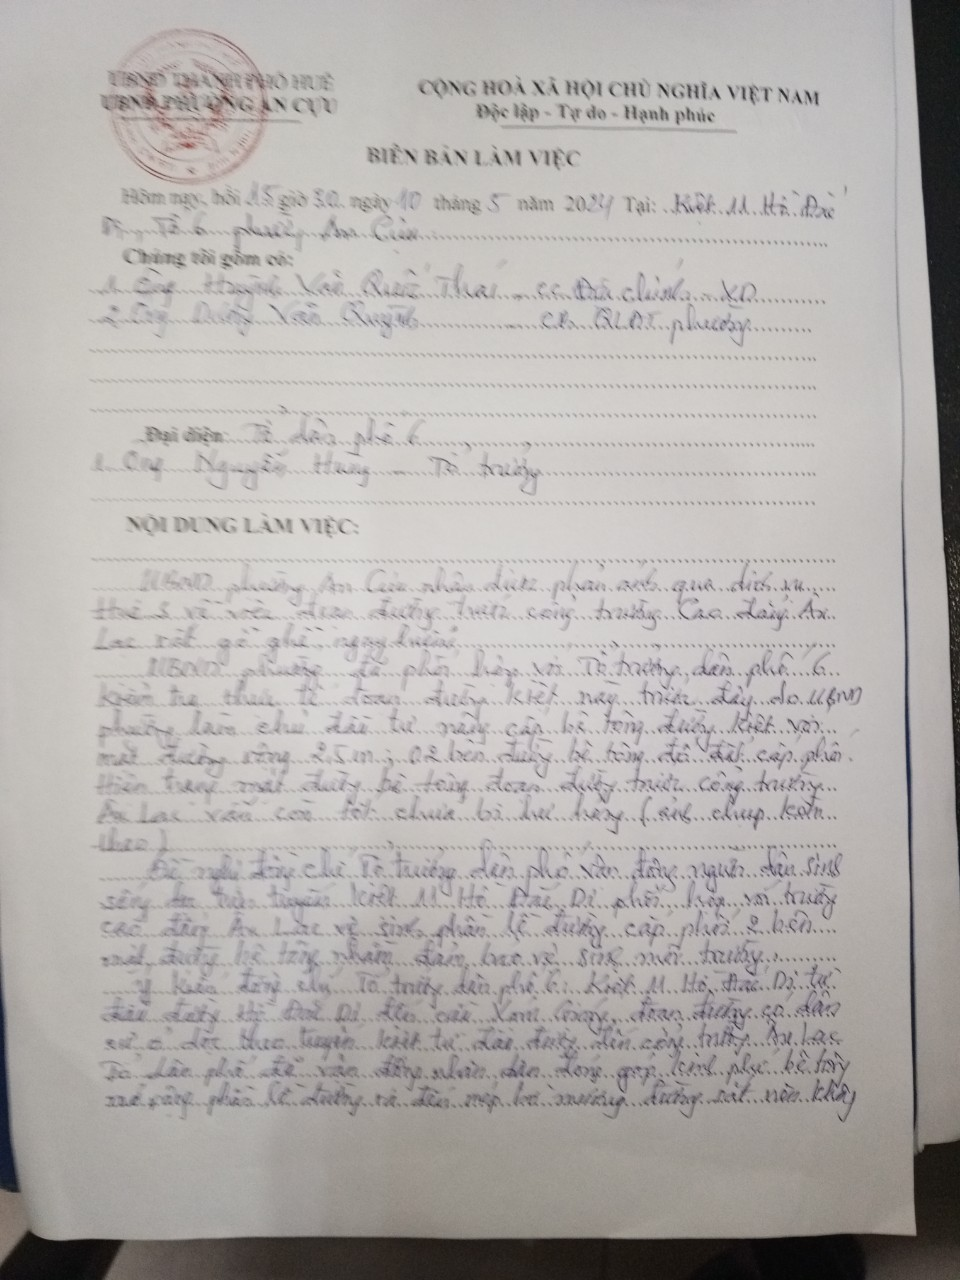 UBND THÀNH PHỐ HUẾ
UBND PHƯỜNG AN CỰU
CỘNG HOÀ XÃ HỘI CHỦ NGHĨA VIỆT NAM
Độc lập - Tự do - Hạnh phúc
BIÊN BẢN LÀM VIỆC
Hôm nay, hồi 15 giờ 30 ngày 10 tháng 5 năm 2024 Tại: Kiệt 11 Hồ Đắc
Di, Tổ 6 phường An Cựu
Chúng tôi gồm có:
1. Ông Huỳnh Văn Quốc Thái - CC Địa chính - XD
2. Ông Dương Văn Quỳnh - CB QLĐT phường
Đại diện: Tổ dân phố 6
1. Ông Nguyễn Hùng - Tổ trưởng
NỘI DUNG LÀM VIỆC:
UBND phường An Cựu nhận được phản ánh qua dịch vụ
Huế S về việc đoạn đường trước cổng trường Cao đẳng Âu
Lạc rất gồ ghề, nguy hiểm.
UBND phường đã phối hợp với Tổ trưởng dân phố 6
kiểm tra thực tế đoạn đường kiệt này trước đây do UBND
phường làm chủ đầu tư nâng cấp bê tông đường kiệt với
mặt đường rộng 2,5m; 02 bên đường bê tông đổ đất cấp phối.
Hiện trạng mặt đường bê tông đoạn đường trước cổng trường
Âu Lạc vẫn còn tốt chưa bị hư hỏng (ảnh chụp kèm
theo)
Đề nghị đồng chí Tổ trưởng dân phố vận động người dân sinh
sống trên tuyến kiệt 11 Hồ Đắc Di phối hợp với trường
cao đẳng Âu Lạc vệ sinh phần lề đường cấp phối 2 bên
mặt đường bê tông nhằm đảm bảo vệ sinh môi trường.
Ý kiến đồng chí Tổ trưởng dân phố 6: Kiệt 11 Hồ Đắc Di từ
đầu đường Hồ Đắc Di đến cầu đoạn đường có dân
cư ở dọc theo tuyến kiệt từ đầu đường đến cổng trường Âu Lạc
Tổ dân phố đã vận động nhân dân đóng góp kinh phí bê tông
mở rộng phần lề đường ra đến mép bờ mương đường sắt nên không